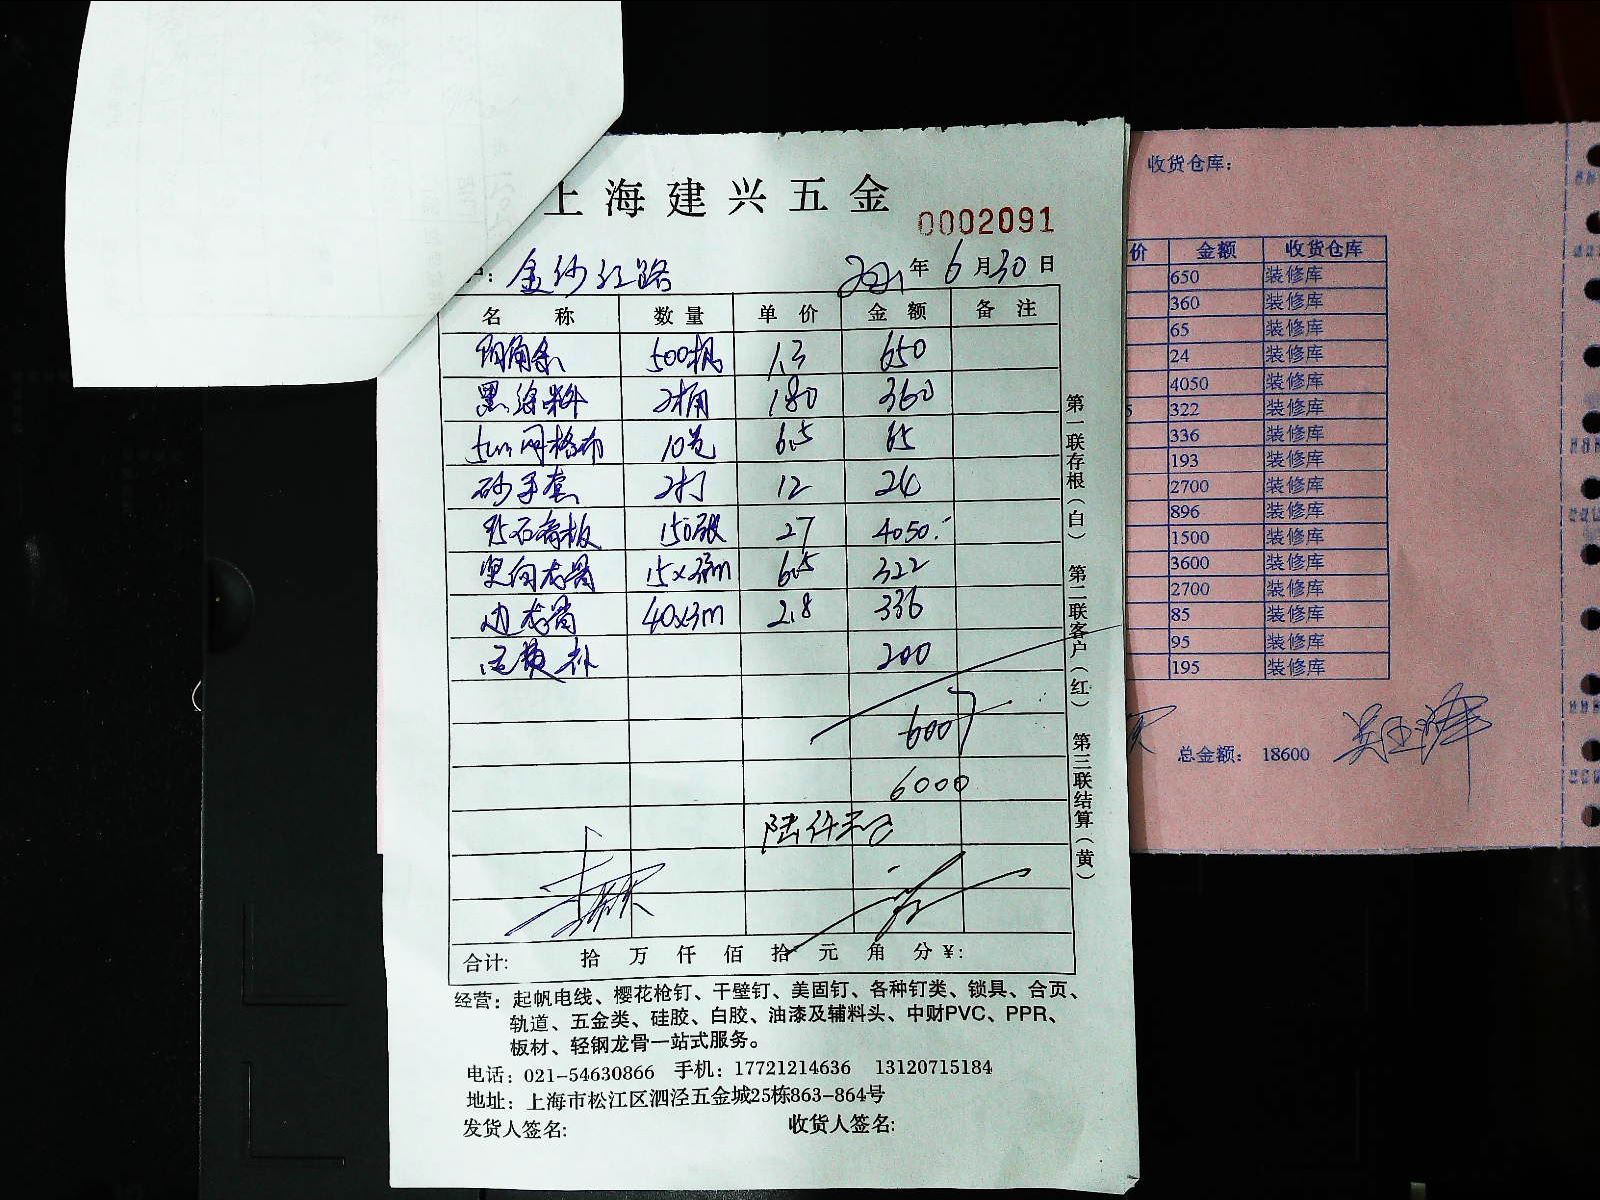 上海建兴五金
0002091
户：金沙江路 2021年6月30日
名称 数量 单价 金额 备注
阴角条 500根 1.3 650
黑涂料 2桶 180 360
5cm网格布 10卷 6.5 65
砂手套 2打 12 24
石膏板 150张 27 4050
竖向龙骨 15× 6.5 322
边龙骨 40×3m 2.8 336
运费补 200
6007
6000
陆仟元
合计： 拾 万 仟 佰 拾 元 角 分 ¥：
第一联存根（白） 第二联客户（红） 第三联结算（黄）
经营：起帆电线、樱花枪钉、干壁钉、美固钉、各种钉类、锁具、合页、
轨道、五金类、硅胶、白胶、油漆及辅料头、中财PVC、PPR、
板材、轻钢龙骨一站式服务。
电话：021-54630866 手机：17721214636 13120715184
地址：上海市松江区泗泾五金城25栋863-864号
发货人签名： 收货人签名：
收货仓库：
价 金额 收货仓库
650 装修库
360 装修库
65 装修库
24 装修库
4050 装修库
5 322 装修库
336 装修库
193 装修库
2700 装修库
896 装修库
1500 装修库
3600 装修库
2700 装修库
85 装修库
95 装修库
195 装修库
总金额： 18600